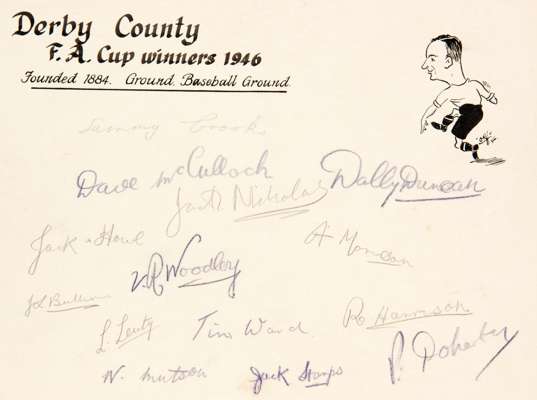 Derby County
F.A. Cup winners 1946
Founded 1884. Ground. Baseball Ground.
Sammy Crooks
Dave McCulloch
Jack Nicholas
Dally Duncan
Jack Howe
A Morrison
V R Woodley
Jack Bullions
L. Leuty
Tim Ward
R. Harrison
W. Mutson
Jack Stamps
P. Doherty